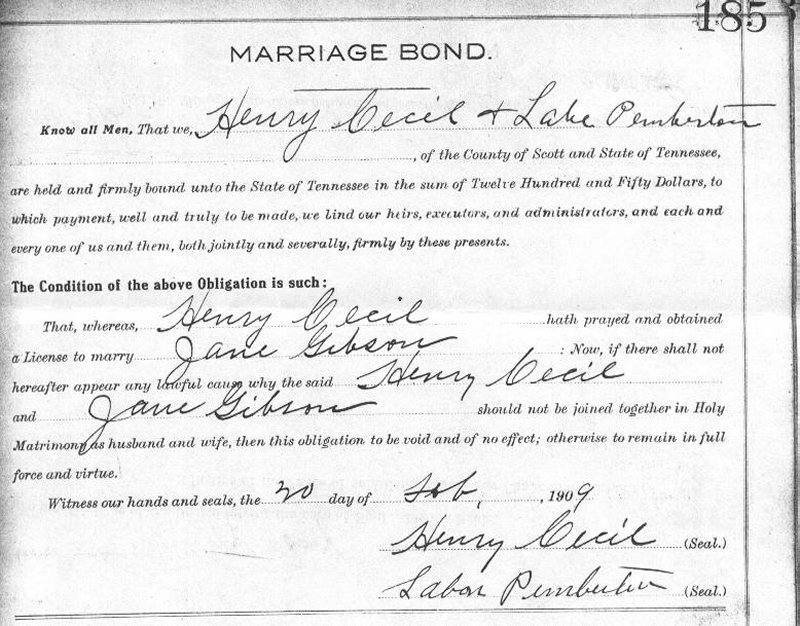 185
MARRIAGE BOND.
Know all Men, That we, Henry Cecil & Labe Pemberton
, of the County of Scott and State of Tennessee,
are held and firmly bound unto the State of Tennessee in the sum of Twelve Hundred and Fifty Dollars, to
which payment, well and truly to be made, we bind our heirs, executors, and administrators, and each and
every one of us and them, both jointly and severally, firmly by these presents.
The Condition of the above Obligation is such:
That, whereas, Henry Cecil hath prayed and obtained
a License to marry Jane Gibson : Now, if there shall not
hereafter appear any lawful cause why the said Henry Cecil
and Jane Gibson should not be joined together in Holy
Matrimony as husband and wife, then this obligation to be void and of no effect; otherwise to remain in full
force and virtue.
Witness our hands and seals, the 20 day of Feb, , 1909
Henry Cecil (Seal.)
Labon Pemberton (Seal.)